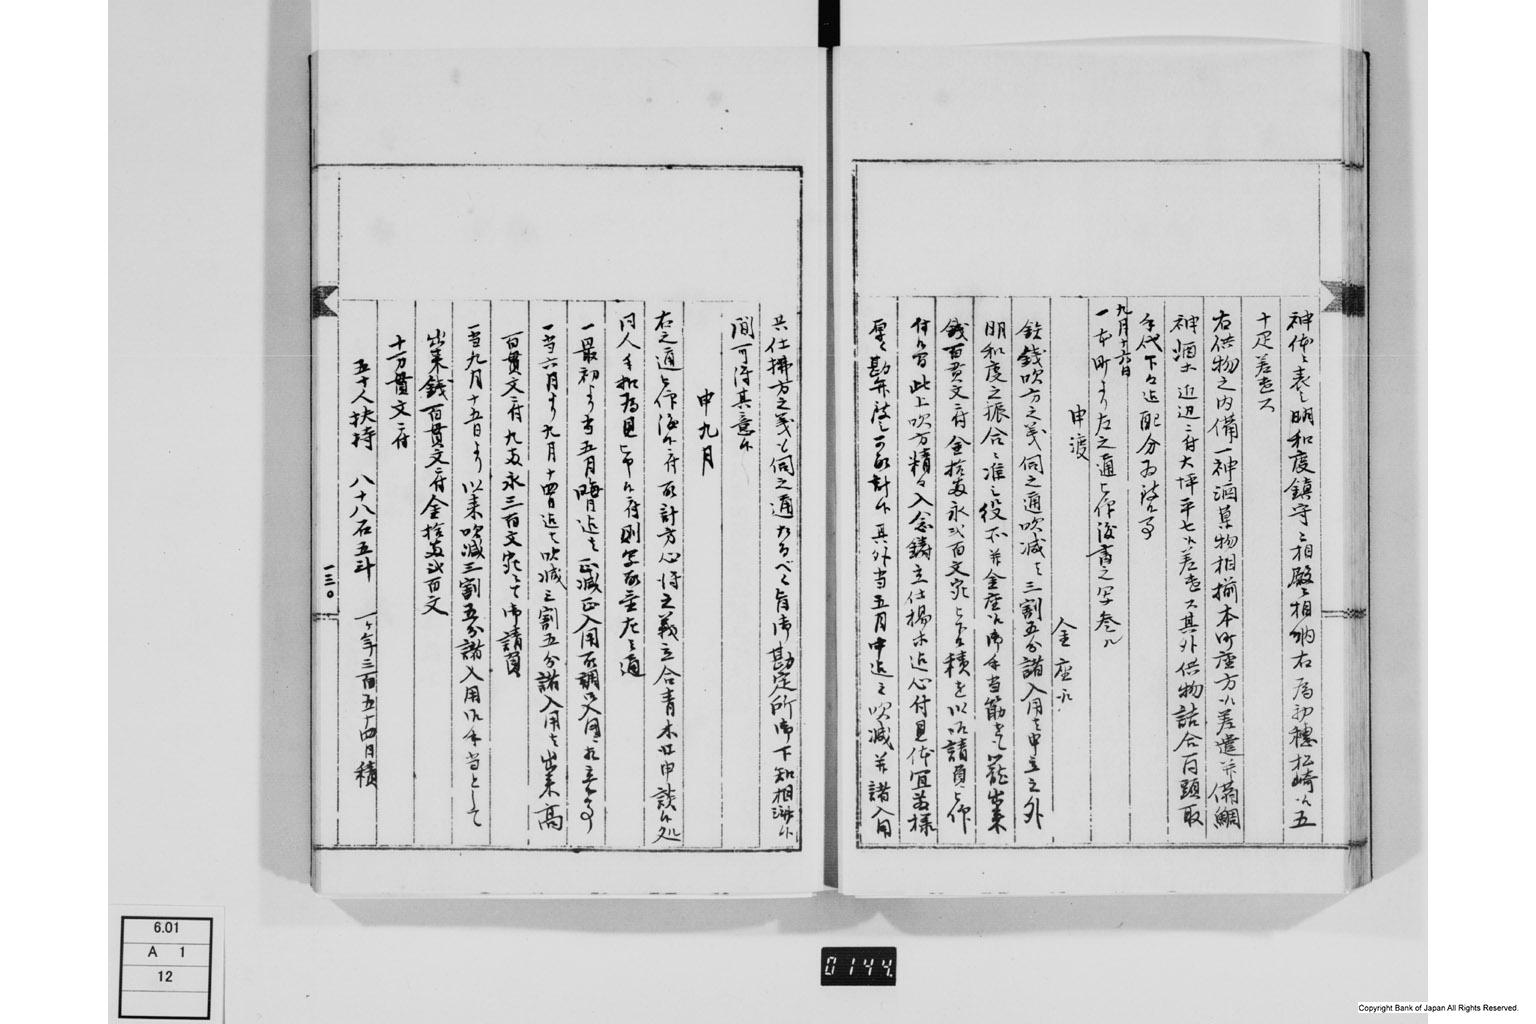 神体之表ニ明和度鎮守ニ相殿ニ相納右為初穂松崎江五
十疋差遣ス
右供物之内備一神酒菓物相揃本町座方江差遣并備鯛
神酒 近辺ニ付大坪平七江差遣ス其外供物詰合一同頭取
手代下々迄配分為致候事
九月十六日
一本町より左之通被仰渡書之写参ル
申渡
金座江
鉄銭吹方之義伺之通吹減ハ三割五分諸入用ハ申立之外
明和度之振合ニ准シ役所并金座江御手当筋共ニ籠出来
銭百貫文ニ付金拾両永弐百文宛 積を以請負被仰
付候間此上吹方精々入念鋳立仕揚等迄心付見体宜様
厚勘弁致し可取計候其外当五月中迄之吹減并諸入用
共仕拂方之義も伺之通たるべく旨御勘定所御下知相済候
間可得其意候
申九月
右之通被仰渡候ニ付取計方心得之義立合青木江申談候処
同人手扣為見 候ニ付則写取左之通
一最初より当五月晦日迄ハ正減正入用
一当六月より九月十四日迄ハ吹減三割五分諸入用ハ出来高
百貫文ニ付九両永三百文宛ニて御請負
一当九月十五日より以来吹減三割五分諸入用御手当として
出来銭百貫文ニ付金拾両弐百文
十万貫文ニ付
五十人扶持 八十八石五斗 一ヶ年三百五十四日積
一三〇
6.01
A 1
12
0144
Copyright Bank of Japan All Rights Reserved.